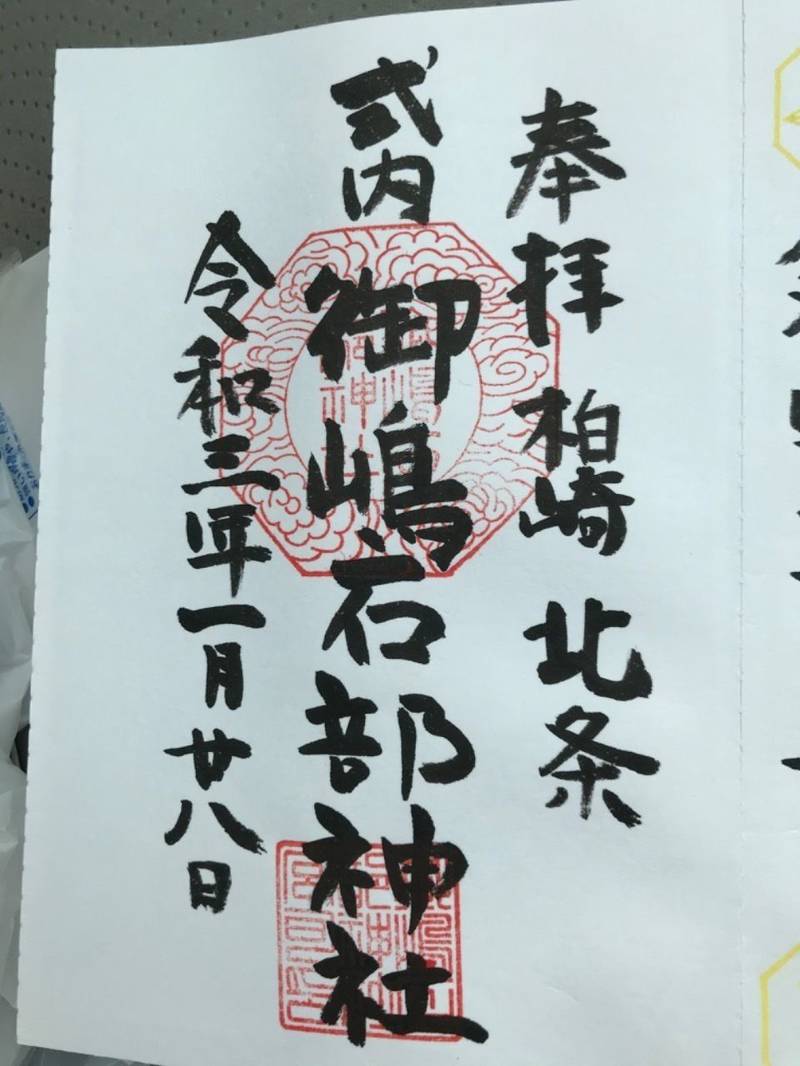 奉拝 柏崎 北条
式内 御嶋石部神社
令和三年一月廿八日